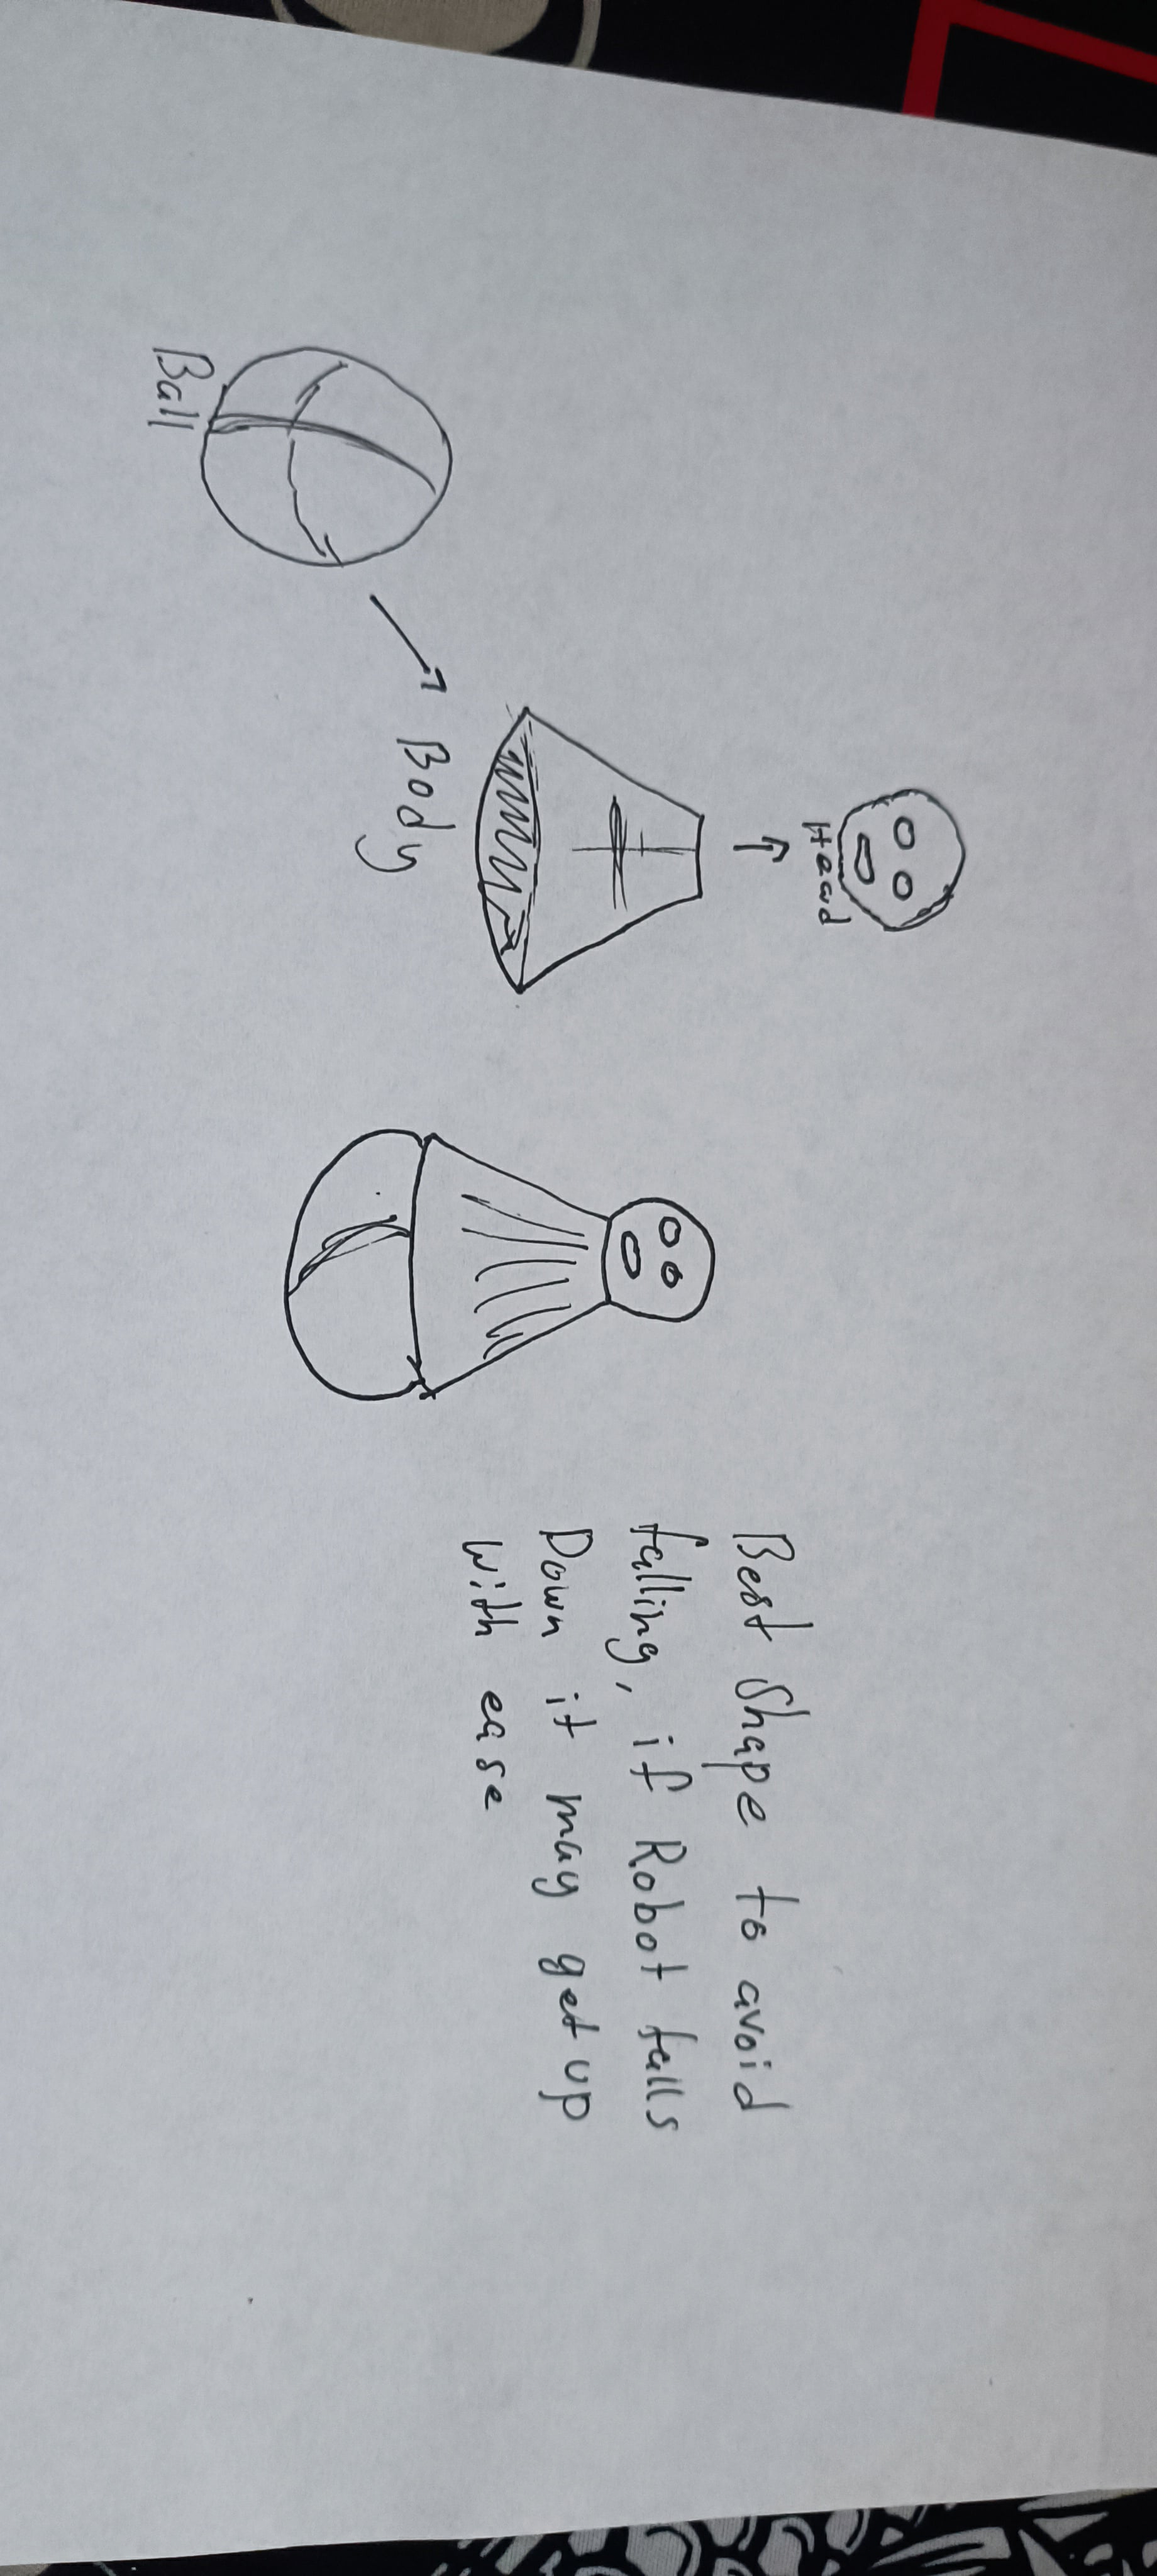 Head
Body
Ball
Best Shape to avoid
falling, if Robot falls
Down it may get up
with ease